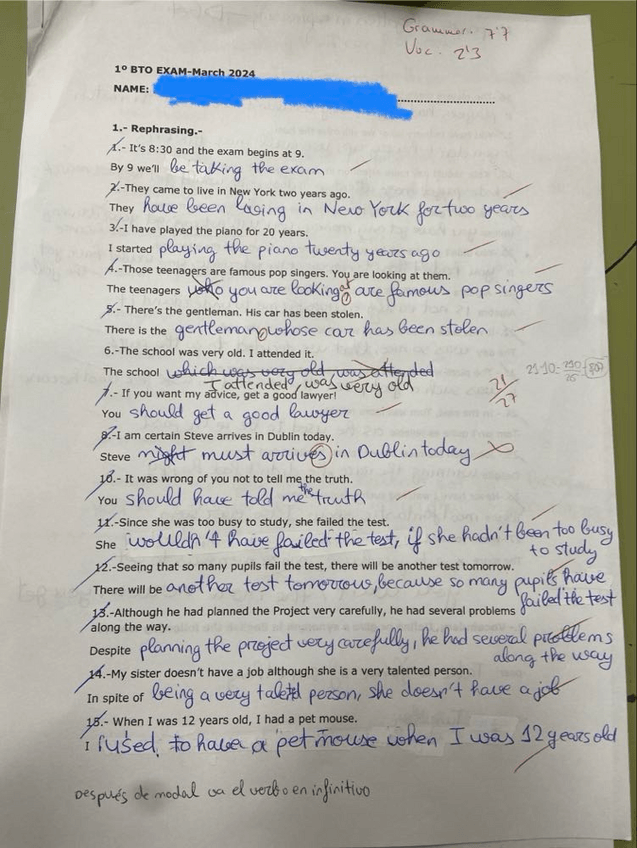 Grammar: 7'7
Voc. 2'3
1º BTO EXAM-March 2024
NAME:
1.- Rephrasing.-
1.- It's 8:30 and the exam begins at 9.
By 9 we'll be taking the exam
2.-They came to live in New York two years ago.
They have been living in New York for two years
3.-I have played the piano for 20 years.
I started playing the piano twenty years ago
4.-Those teenagers are famous pop singers. You are looking at them.
The teenagers who you are looking at are famous pop singers
5.- There's the gentleman. His car has been stolen.
There is the gentleman, whose car has been stolen
6.-The school was very old. I attended it.
The school which was very old, was attended
I attended, was very old
7.- If you want my advice, get a good lawyer!
You should get a good lawyer
21/27
8.-I am certain Steve arrives in Dublin today.
Steve might must arrives in Dublin today
10.- It was wrong of you not to tell me the truth.
You should have told me the truth
11.-Since she was too busy to study, she failed the test.
She wouldn't have failed the test, if she hadn't been too busy
to study
12.-Seeing that so many pupils fail the test, there will be another test tomorrow.
There will be another test tomorrow, because so many pupils have
failed the test
13.-Although he had planned the Project very carefully, he had several problems
along the way.
Despite planning the project very carefully, he had several problems
along the way
14.-My sister doesn't have a job although she is a very talented person.
In spite of being a very taletd person, she doesn't have a job
15.- When I was 12 years old, I had a pet mouse.
I used to have a pet mouse when I was 12 years old
Después de modal va el verbo en infinitivo